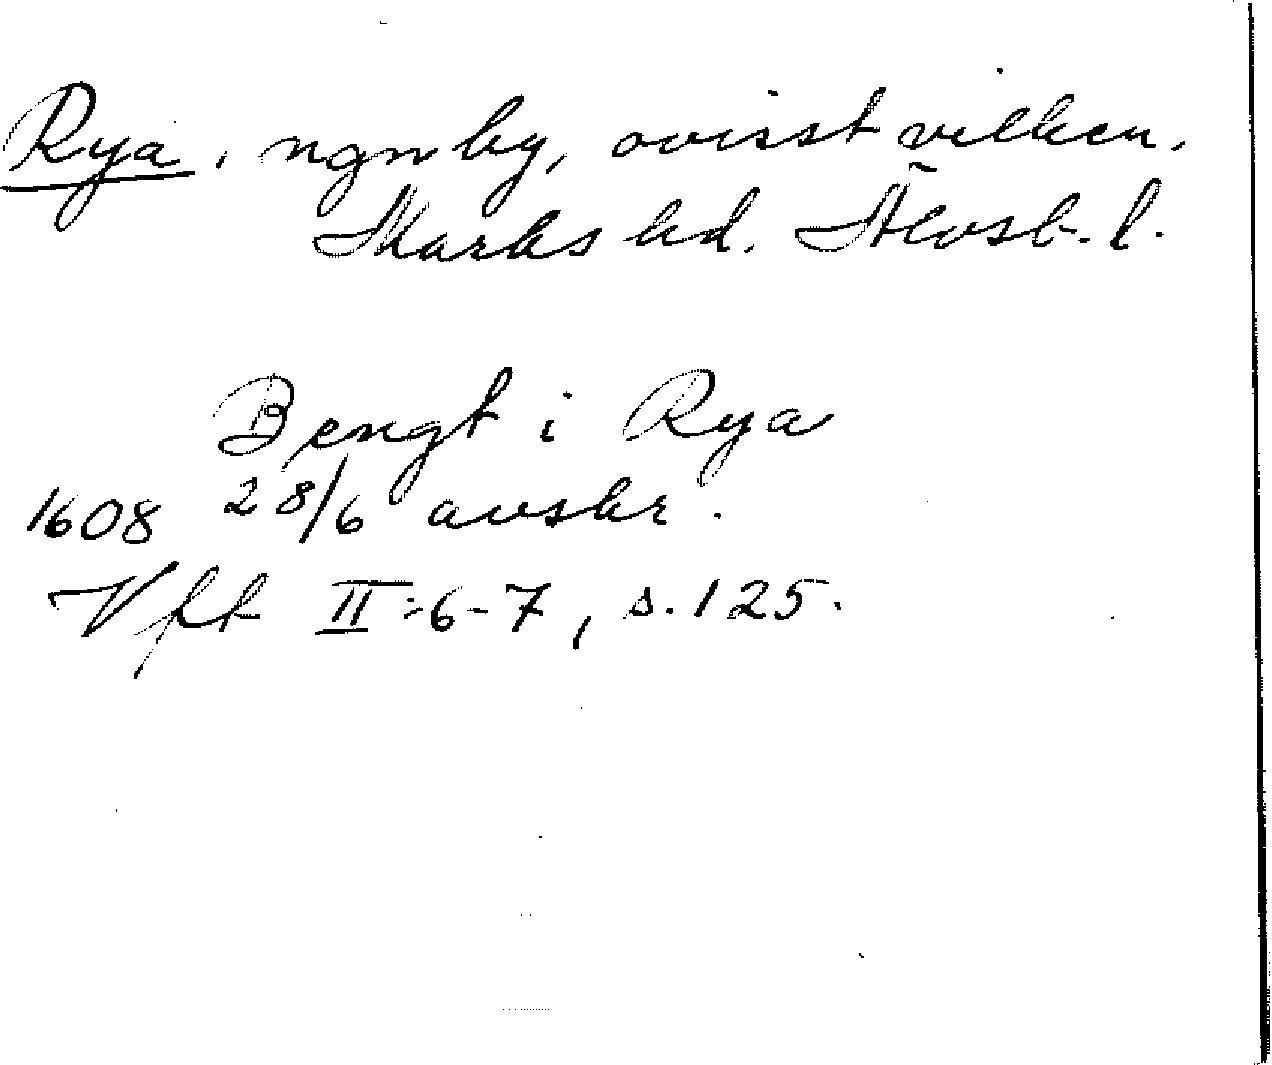 Rya, ngn by, ovisst vilken.
Marks hd. Älvsb. l.
Bengt i Rya
1608 28/6 avskr.
Vfft II:6-7, s. 125.